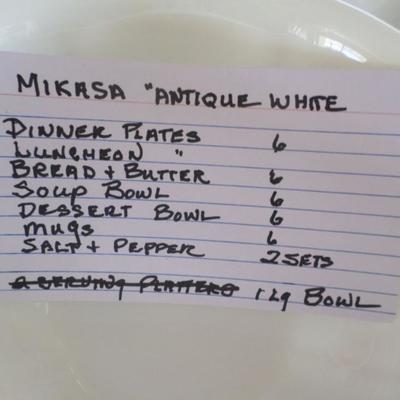 MIKASA "ANTIQUE WHITE
DINNER PLATES 6
LUNCHEON "
BREAD + BUTTER 6
SOUP BOWL 6
DESSERT BOWL 6
MUGS 6
SALT + PEPPER 2 SETS
2 SERVING PLATTERS 1 Lg BOWL